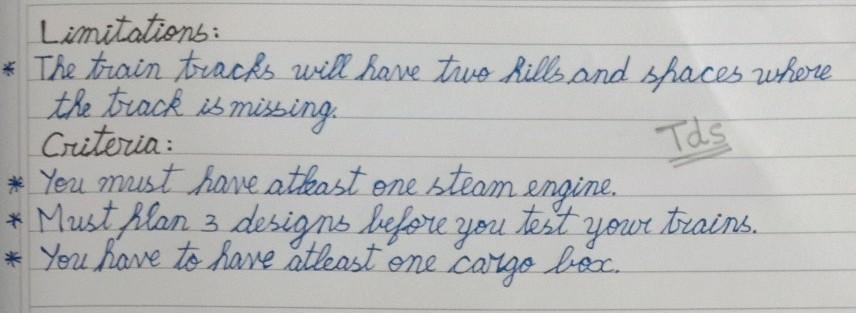 Limitations:
* The train tracks will have two hills and spaces where
the track is missing.
Criteria:
Tds
* You must have atleast one steam engine.
* Must plan 3 designs before you test your trains.
* You have to have atleast one cargo box.